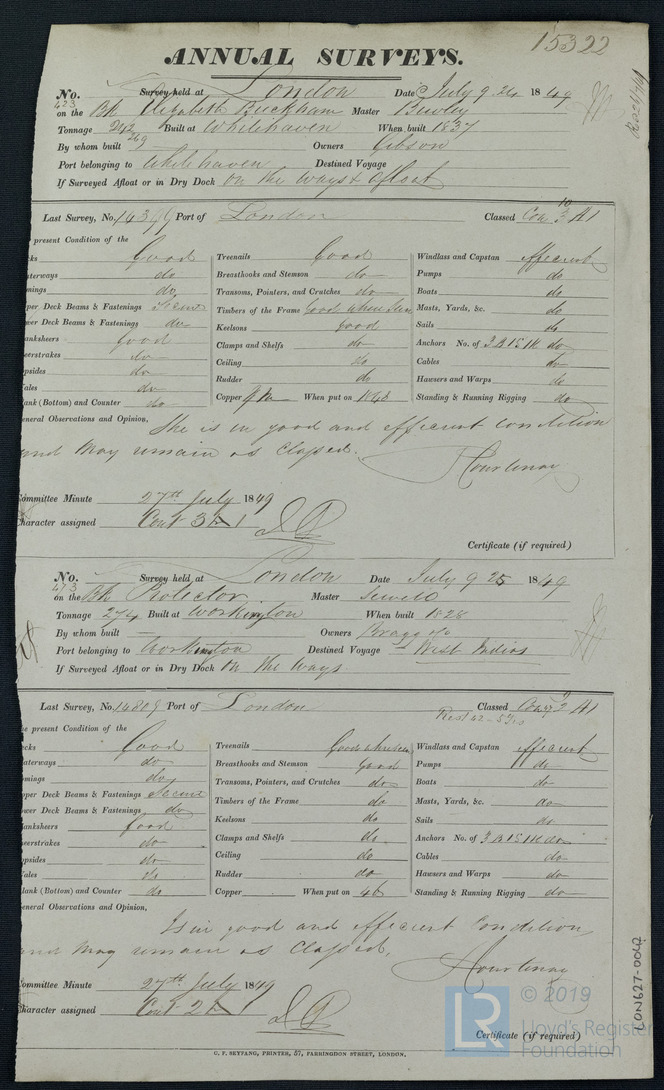 15322
ANNUAL SURVEYS.
No. 423 Survey held at London Date July 9. 24 1849
on the Bk Elizabeth Buckham Master Bewley
Tonnage 242 269 Built at Whitehaven When built 1837
By whom built Owners Gibson
Port belonging to Whitehaven Destined Voyage
If Surveyed Afloat or in Dry Dock on the Ways & afloat
Last Survey, No. Port of London Classed Con 10 3 A1
present Condition of the
cks Good Treenails Good Windlass and Capstan efficient
aterways do Breasthooks and Stemson do Pumps do
mings do Transoms, Pointers, and Crutches do Boats do
per Deck Beams & Fastenings Secure Timbers of the Frame Good when seen Masts, Yards, &c. do
wer Deck Beams & Fastenings do Keelsons good Sails do
anksheers Good Clamps and Shelfs do Anchors No. of 3 B 1 S 1 K do
eerstrakes do Ceiling do Cables do
psides do Rudder do Hawsers and Warps do
ales do Copper When put on 1848 Standing & Running Rigging do
ank (Bottom) and Counter do
eneral Observations and Opinion, She is in good and efficient condition
and may remain as Classed.
Courtenay
ommittee Minute 27th July 1849
haracter assigned Cont 3 A 1
Certificate (if required)
No. 473 Survey held at London Date July 9 25 1849
on the Bk Protector Master Sewell
Tonnage 274 Built at Workington When built 1828
By whom built — Owners Bragg & Co
Port belonging to Workington Destined Voyage West Indies
If Surveyed Afloat or in Dry Dock On the ways
Last Survey, No. 14809 Port of London Classed A1
Rest 42 - 5 Yrs
e present Condition of the
cks Good Treenails Good when seen Windlass and Capstan efficient
aterways do Breasthooks and Stemson Good Pumps do
mings do Transoms, Pointers, and Crutches do Boats do
pper Deck Beams & Fastenings Secure Timbers of the Frame do Masts, Yards, &c. do
wer Deck Beams & Fastenings do Keelsons do Sails do
lanksheers Good Clamps and Shelfs do Anchors No. of 3 B 1 S 1 K do
eerstrakes do Ceiling do Cables do
psides do Rudder do Hawsers and Warps do
ales do Copper When put on 46 Standing & Running Rigging do
lank (Bottom) and Counter do
eneral Observations and Opinion,
Is in good and efficient Condition
and may remain as Classed.
Courtenay
ommittee Minute 27th July 1849
haracter assigned Cont 2 A 1
Certificate (if required)
G. F. SEYFANG, PRINTER, 57, FARRINGDON STREET, LONDON.
LON627-0042
LR © 2019
Lloyd's Register
Foundation